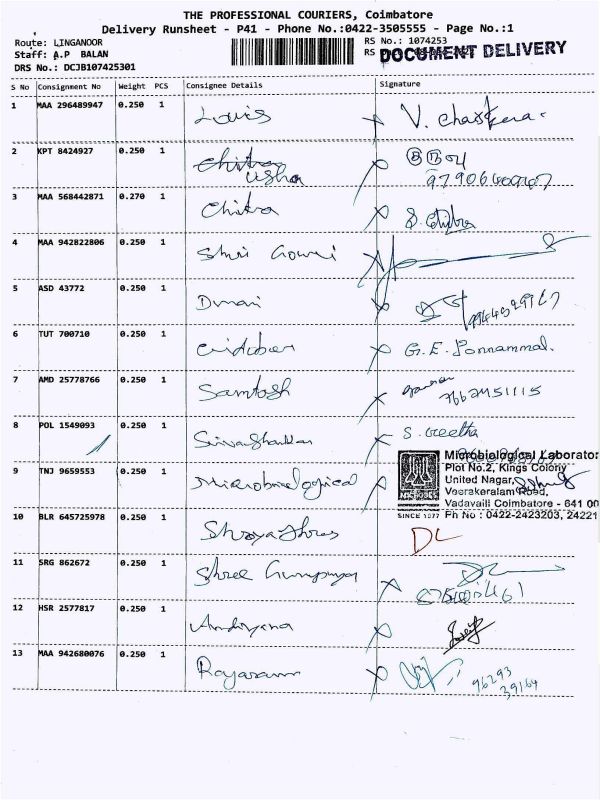 THE PROFESSIONAL COURIERS, Coimbatore
Delivery Runsheet - P41 - Phone No.:0422-3505555 - Page No.:1
Route: LINGANOOR
RS No.: 1074253
Staff: A.P BALAN
RS
DOCUMENT DELIVERY
DRS No.: DCJB107425301
S No Consignment No Weight PCS Consignee Details Signature
1 MAA 296489947 0.250 1 Louis V.
2 KPT 8424927 0.250 1 Chitra
Usha
3 MAA 568442871 0.270 1 Chitra S. Chitra
4 MAA 942822806 0.250 1 Shri Gowri
5 ASD 43772 0.250 1
6 TUT 700710 0.250 1 G.E. Ponnammal.
7 AMD 25778766 0.250 1 Santosh
8 POL 1549093 0.250 1 S. Geetha
9 TNJ 9659553 0.250 1 Microbiological
Microbiological Laborator
Plot No.2, Kings Colony
United Nagar,
Veerakeralam Road,
Vadavalli Coimbatore - 641 00
SINCE 1977 Ph No : 0422-2423203, 24221
10 BLR 645725978 0.250 1 DL
11 SRG 862672 0.250 1 Shree
12 HSR 2577817 0.250 1
13 MAA 942680076 0.250 1 Rajaram
96293
39164